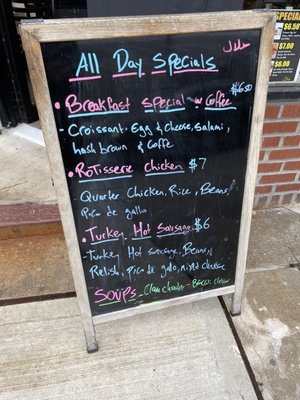 All Day Specials
Breakfast Special w Coffee $6.50
- Croissant. Egg & cheese, Salami,
hash brown & Coffe
Rotisserie Chicken $7
Quarter Chicken, Rice, Beans,
Pico de gallo
Turkey Hot Sausage $6
- Turkey Hot Sausage, Beans,
Relish, Pico de galo, mixed cheese
SOUPS - Clam chowder -
SPECIAL
$7.00
$6.00